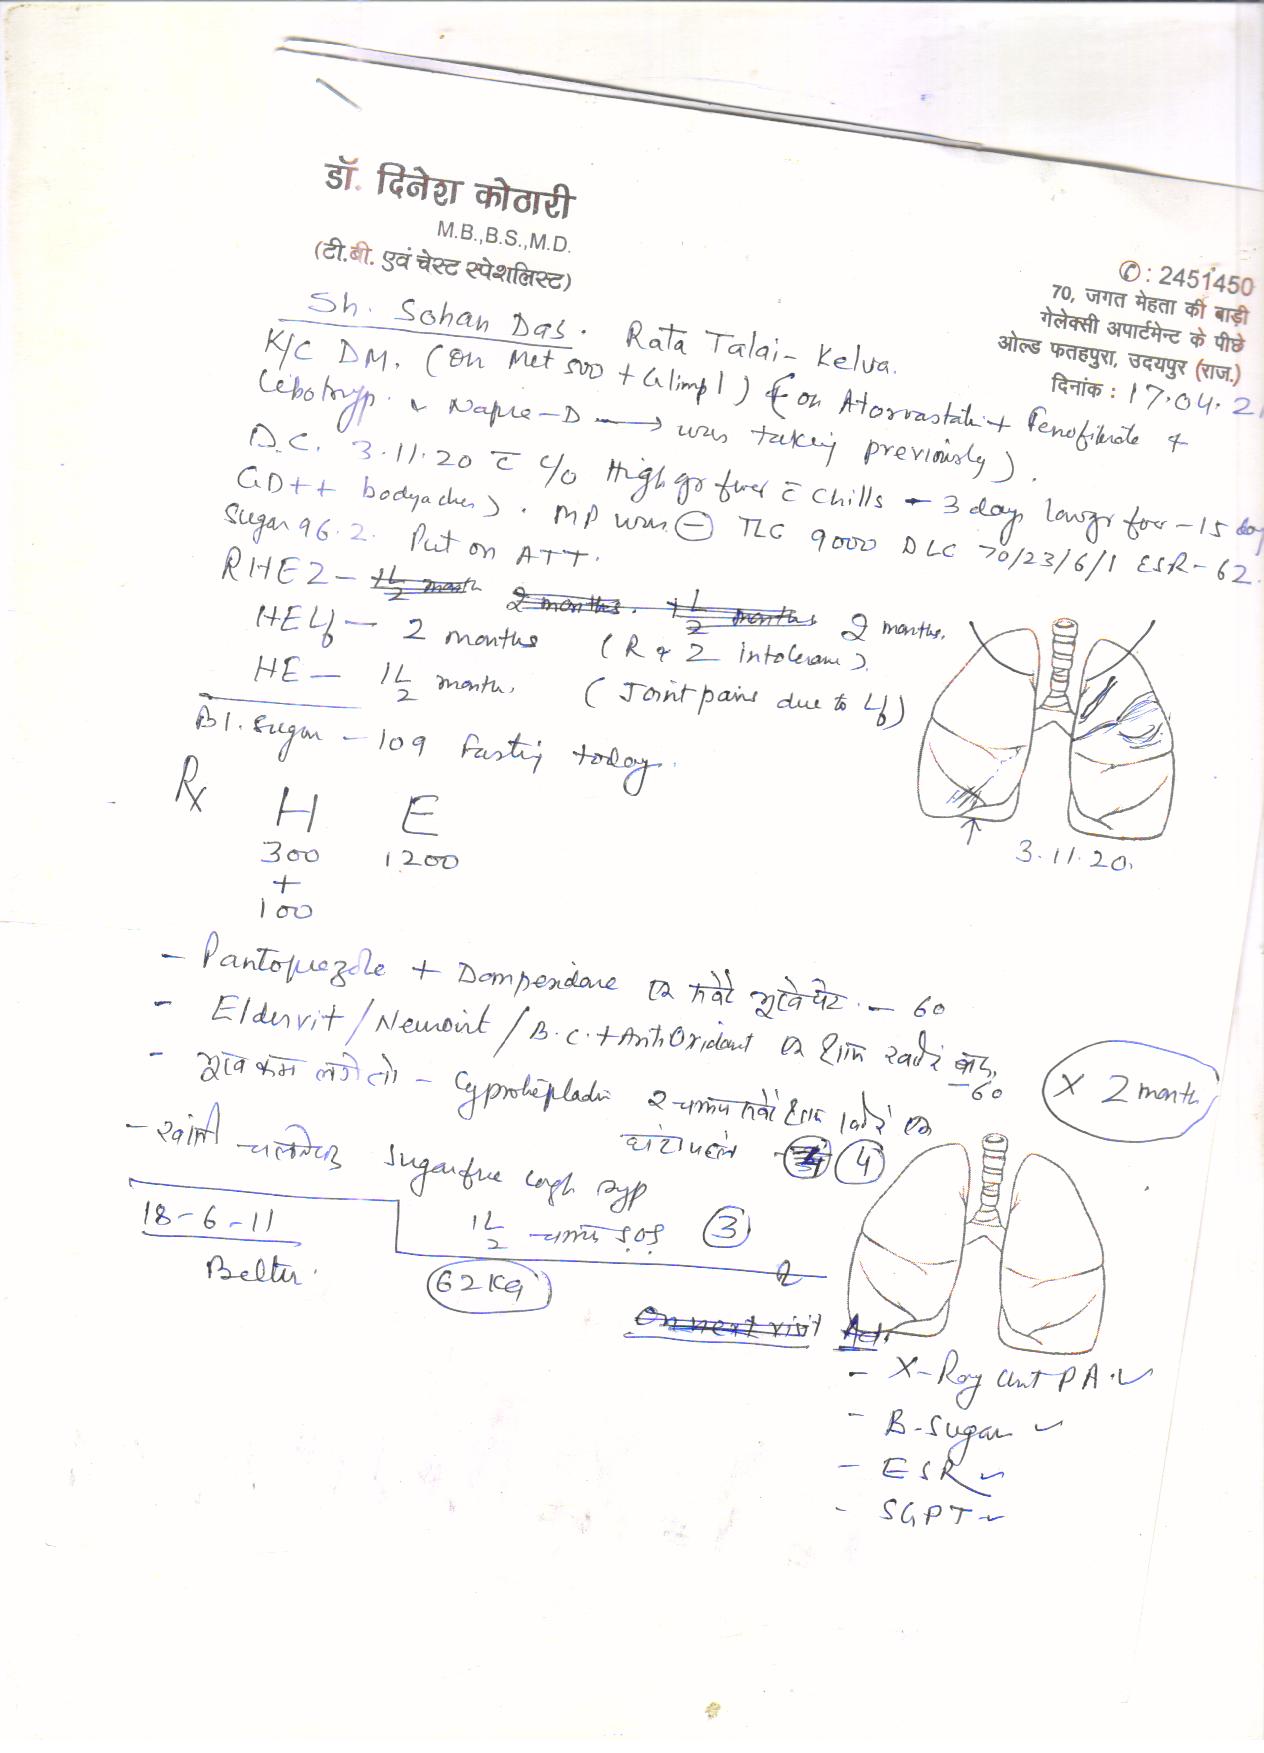 डॉ. दिनेश कोठारी
M.B.,B.S.,M.D.
(टी.बी. एवं चेस्ट स्पेशलिस्ट)
✆ : 2451450
70, जगत मेहता की बाड़ी
गेलेक्सी अपार्टमेन्ट के पीछे
ओल्ड फतहपुरा, उदयपुर (राज.)
दिनांक : 17.04.2
Sh. Sohan Das. Rata Talai - Kelva.
K/C DM. (on Met 500 + Glimp 1) & on Atorvastatin + Fenofibrate &
Napre-D → was taking previously).
D.C. 3.11.20 c̄ c/o High gr fever c̄ chills - 3 days low gr fever - 15 day
GD++ bodyaches). MP was ⊖ TLC 9000 DLC 70/23/6/1 ESR-62.
Sugar 96.2. Put on ATT.
RHEZ - 2 months.
HELf - 2 months (R & Z intolerance).
HE - 1½ month. (Joint pains due to Lf)
Bl. Sugar - 109 Fasting today.
3.11.20.
Rx H E
300 1200
+
100
- Pantoprazole + Domperidone एक सवेरे भूखे पेट - 60
- Eldervit / Neuroint / B.C. + AntiOxidant एक शाम खाने बाद - 60
- भूख कम लगे तो - Cyproheptadin 2 चम्मच सवेरे शाम खाने एक
घंटा पहले 4
x 2 month
- खांसी चलने पर Sugarfree cough syp
1½ चम्मच S.O.S. 3
18-6-11
Better.
62 Kg
On next visit Ad.
- X-Ray chest PA ✓
- B-Sugar ✓
- ESR ✓
- SGPT ✓